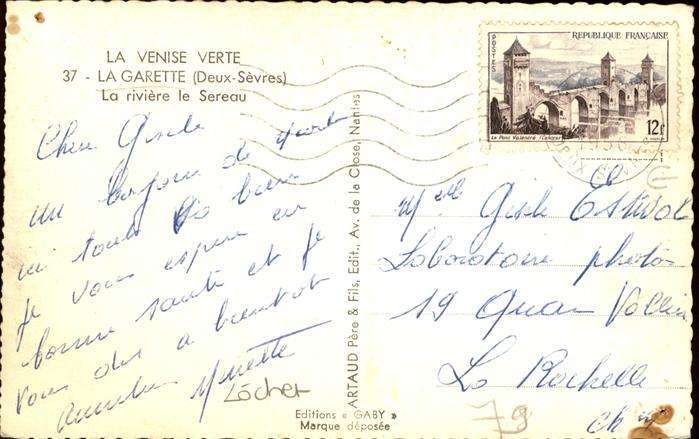 LA VENISE VERTE
37 - LA GARETTE (Deux-Sèvres)
La rivière le Sereau
Chère Gisèle
un bonjour de
ici tout va bien
je vous espère en
bonne santé et je
vous dis a bientot
Amitiés Ginette
Löcher
ARTAUD Père & Fils, Edit., Av. de la Close, Nantes
Editions « GABY »
Marque déposée
POSTES
REPUBLIQUE FRANÇAISE
12F
Le Pont Valentré (Cahors)
Melle Gisèle Estival
Laboratoire photo
19 Quai Vallin
La Rochelle
79
ch me